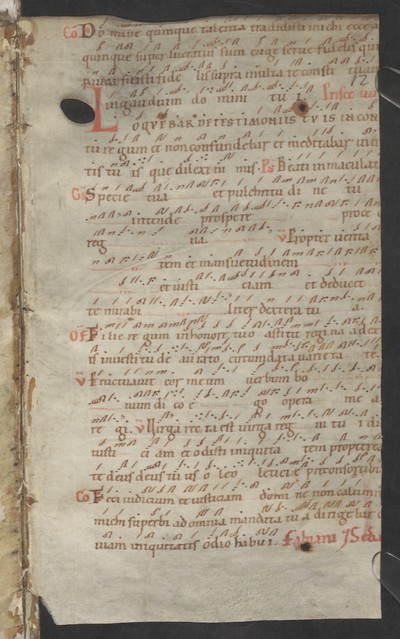 Co Domine quinque talenta tradidisti michi ecce a
quinque super lucratus sum euge serve fidelis qui
pauca fuisti fide lis supra multa te consti tuam
in gaudium do mini tu i. Prisce vir
LOQVEBAR DE TESTIMONIIS TVIS IN CON
tu re gum et non confundebar et meditabar in
tis tu is que dilexi ni mis. Ps Beati inmaculati
Gr Specie tua et pulchritu di ne tu
intende prospere proce
reg na. V Propter verita
tem et mansuetudinem
et iusti ciam et deducet
te mirabi liter dextera tu a.
Of Filie re gum in honore tuo astitit regina a dex
is in vestitu de aurato circumdata varieta te.
V Eructavit cor meum verbum bo
num di co e go opera me a
re gi. V Virga rec ta est virga reg ni tu i di
iusti ci am et odisti iniquita tem propterea
te deus deus tu us o leo leticie pre consortibus
Co Feci iudicium et iusticiam domine non calumn
michi superbi ad omnia mandata tu a dirigebar
viam iniquitatis odio habu i. Fabiani 7 Seba